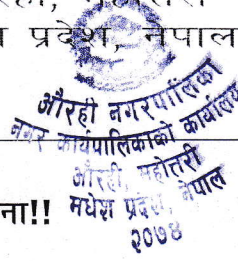 प्रदेश, नेपाल
औरही नगरपालिका
नगर कार्यपालिकाको कार्यालय
औरही, महोत्तरी
मधेश प्रदेश, नेपाल
२०७४
ना!!